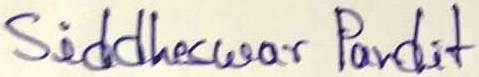 Siddheswar Pandit